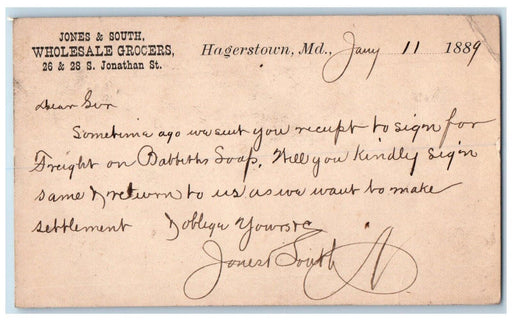 JONES & SOUTH,
WHOLESALE GROCERS,
26 & 28 S. Jonathan St.
Hagerstown, Md., Jany 11 1889
Dear Sir
Sometime ago we sent you receipt to sign for
Freight on Babbitts Soap. Will you Kindly sign
same & return to us as we want to make
settlement & oblige Yours &c
Jones & South